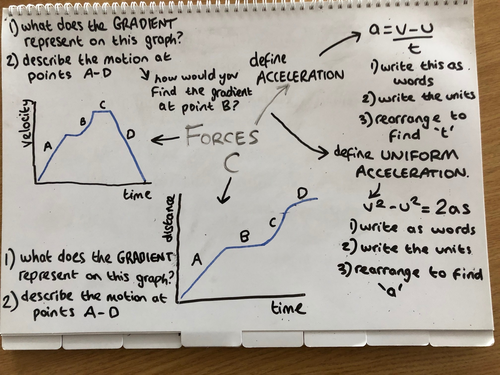 1) what does the GRADIENT
represent on this graph?
2) describe the motion at
points A-D
how would you
find the gradient
at point B?
define
ACCELERATION
a = v-u
t
1) write this as
words
2) write the units
3) rearrange to
find 't'
velocity
A
B
C
D
time
FORCES
C
define UNIFORM
ACCELERATION.
v² - u² = 2as
1) write as words
2) write the units
3) rearrange to find
'a'
1) what does the GRADIENT
represent on this graph?
2) describe the motion at
points A-D
distance
A
B
C
D
time